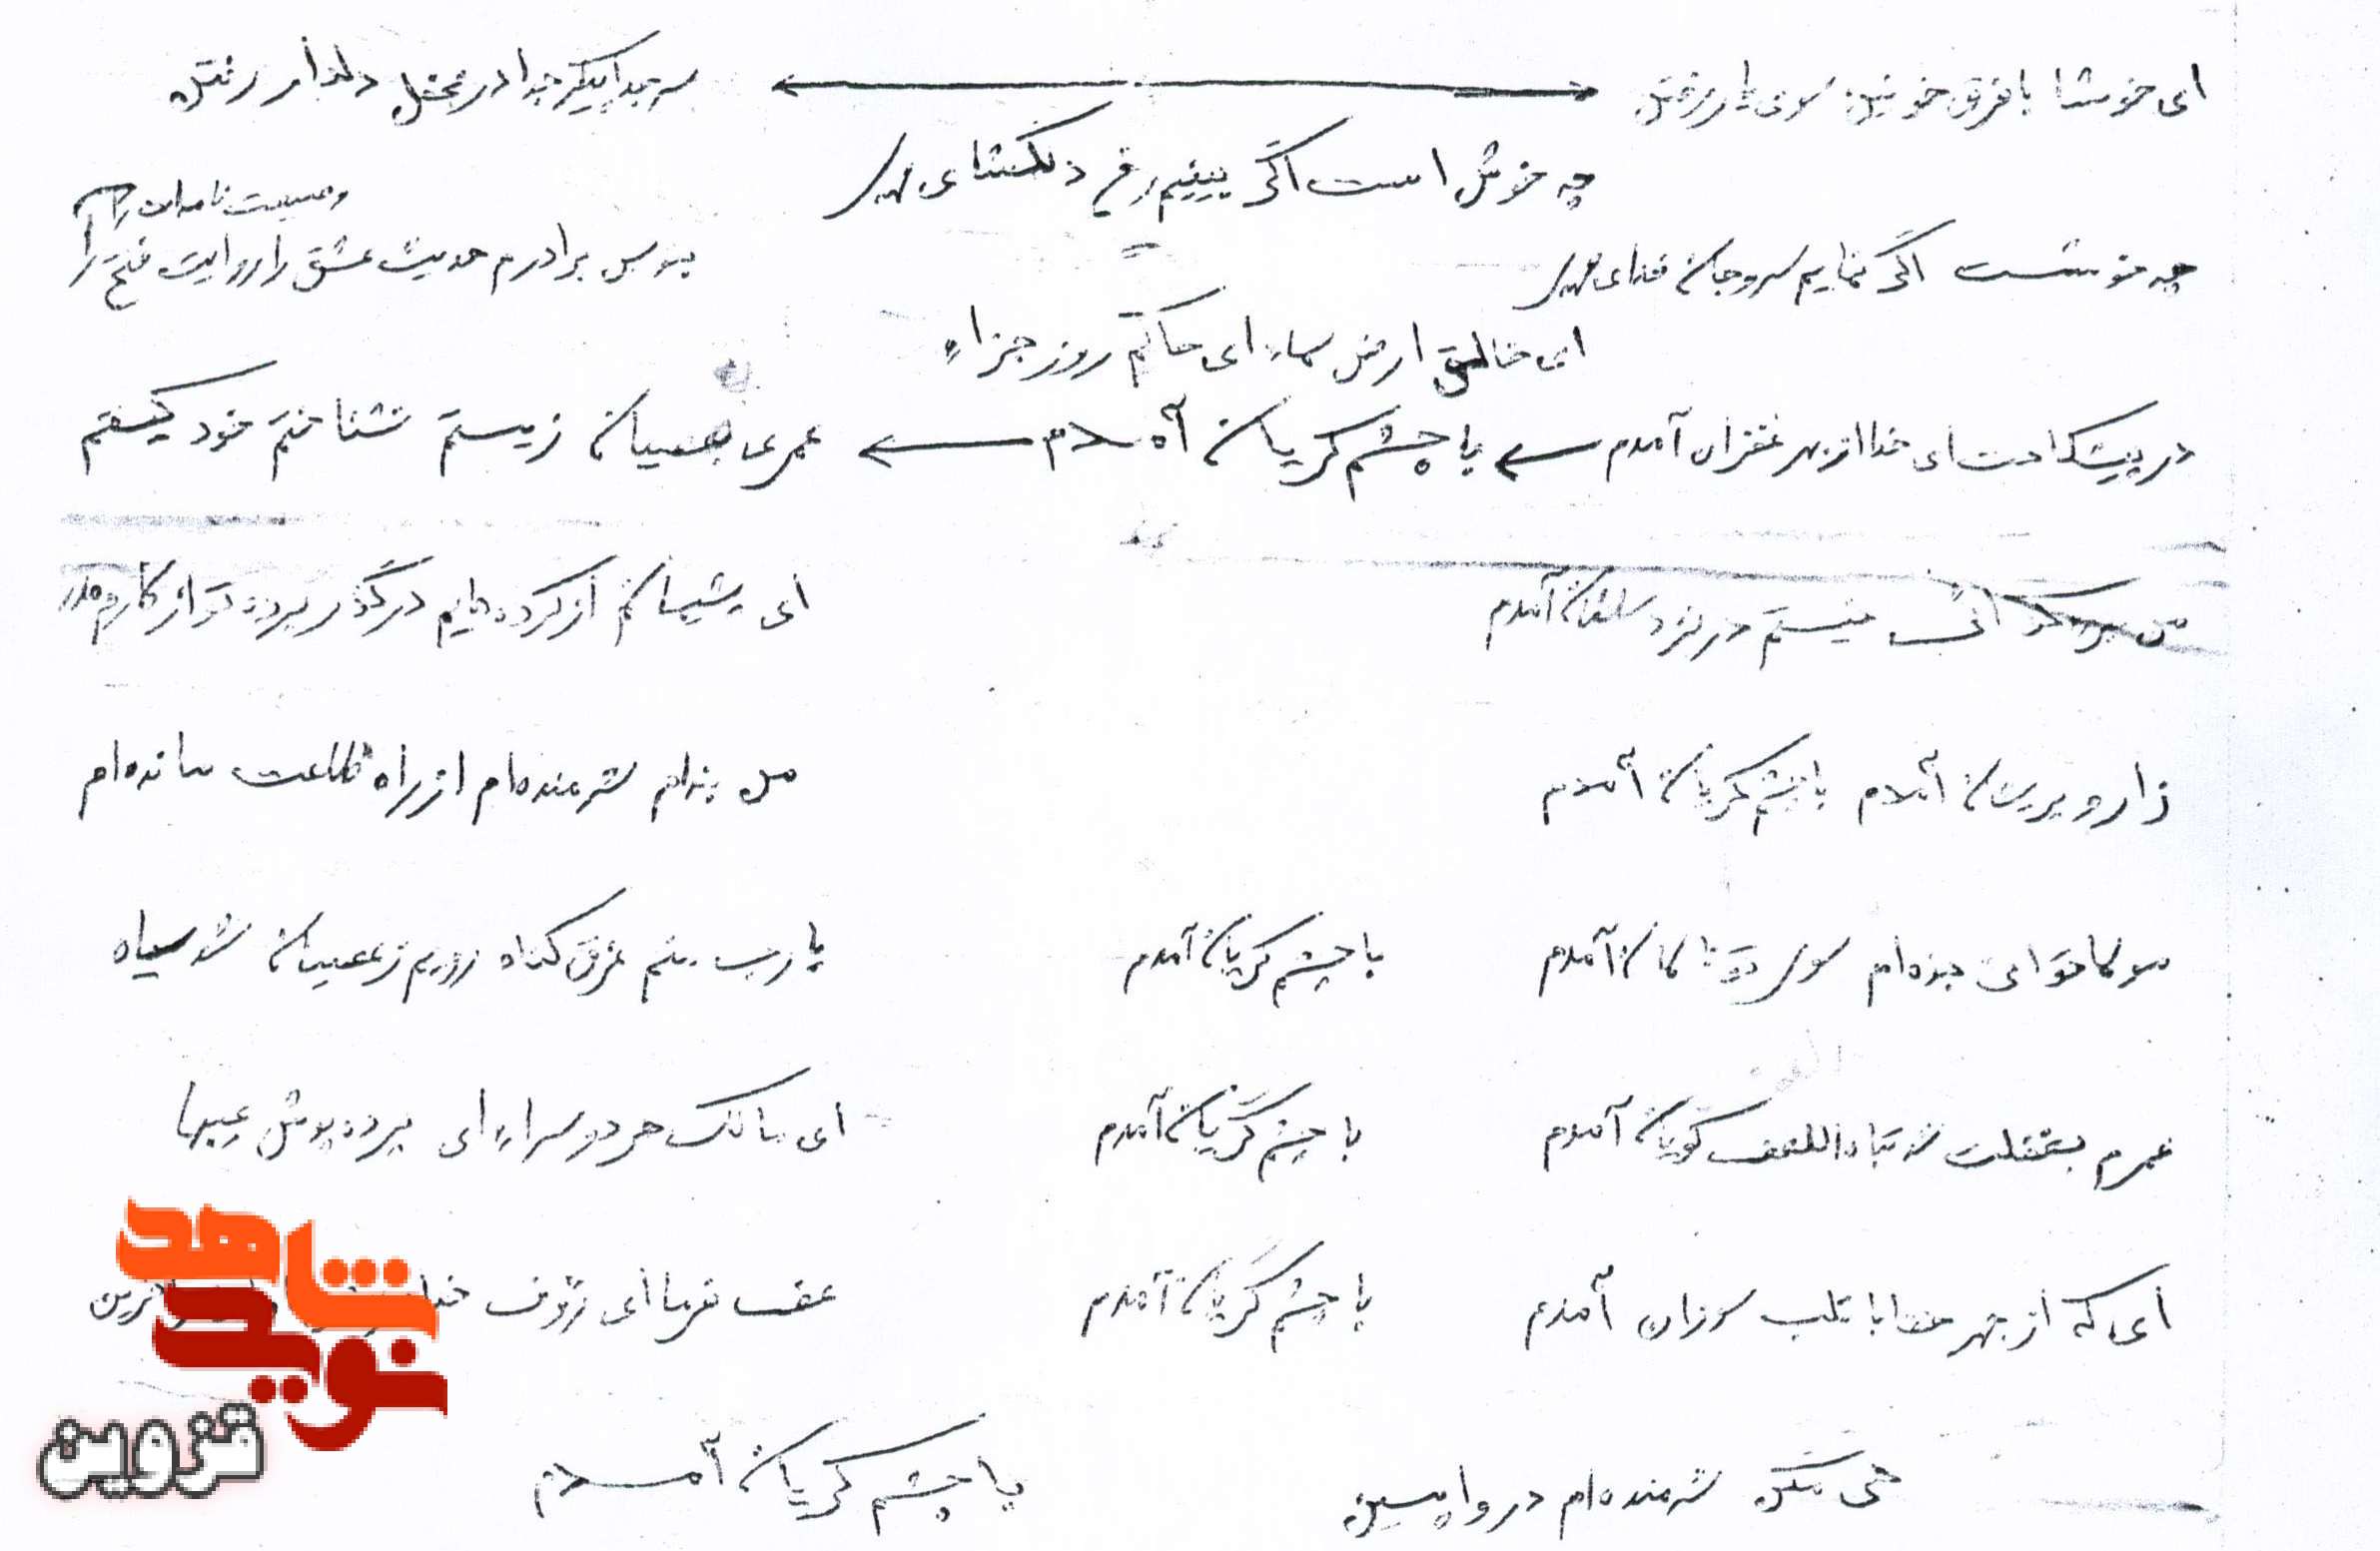 ای خوشا با فرق خونین سوی یار رفتن سر جدا پیکر جدا در محفل دلدار رفتن
چه خوش است اگر ببینیم رخ دلگشای
وصیت نامه
چه خوشست اگر نمایم سر و جان فدای بپرس برادرم حدیث عشق را روایت فتح را
ای خالق ارض سماء ای حاکم روز جزاء
در پیشگاهت ای خدا از بهر غفران آمدم با چشم گریان آمدم عمری بعصیان زیستم نشناختم خود کیستم
من نیستم در نزد سلطان آمدم ای پشیمانم از کرده هایم درگذر پرده تو از کارم مدر
زار و پریشان آمدم با چشم گریان آمدم من بنده‌ام شرمنده‌ام از راه طاعت مانده‌ام
مولا تو ای بنده‌ام سوی تو نالان آمدم با چشم گریان آمدم یا رب منم غرق گناه رویم ز عصیان شد سیاه
عمرم بغفلت شد تباه العفو گویان آمدم با چشم گریان آمدم ای مالک هر دو سراء ای پرده پوش عیبها
ای که از بهر خدا با قلب سوزان آمدم با چشم گریان آمدم عفو فرما ای رئوف
شرمنده‌ام در واپسین با چشم گریان آمدم
شاهد
نوید
قزوین